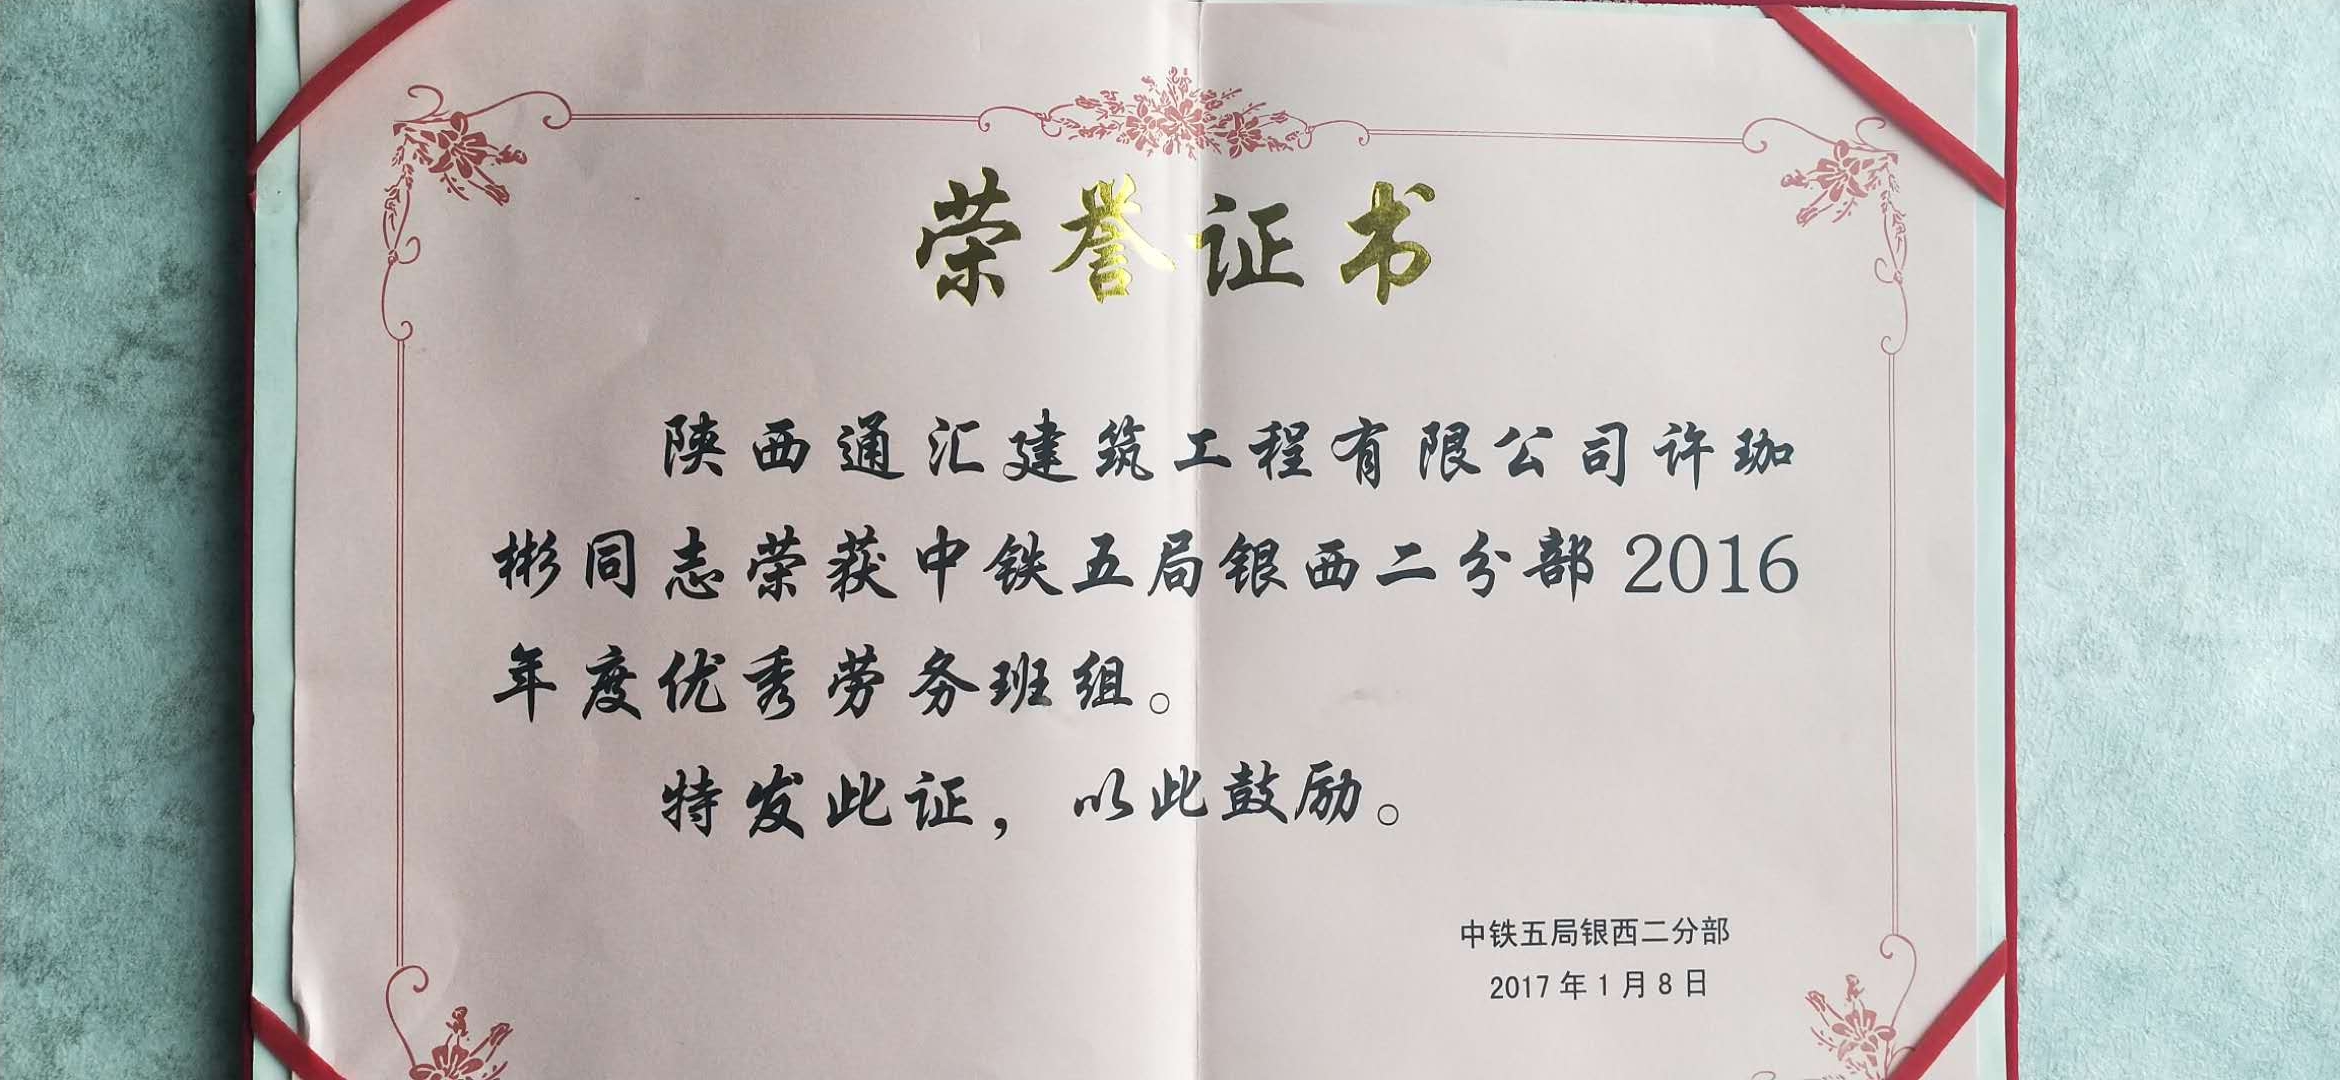 荣誉证书
陕西通汇建筑工程有限公司许珈
彬同志荣获中铁五局银西二分部2016
年度优秀劳务班组。
特发此证，以此鼓励。
中铁五局银西二分部
2017年1月8日